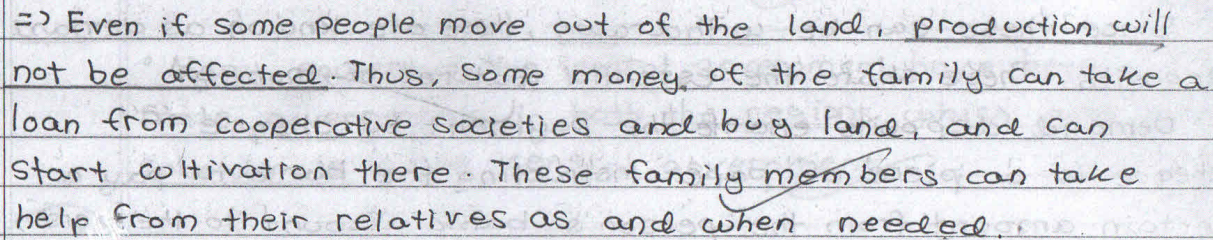 => Even if some people move out of the land, production will
not be affected. Thus, some money of the family can take a
loan from cooperative societies and buy land, and can
start coltivation there. These family members can take
help from their relatives as and when needed.